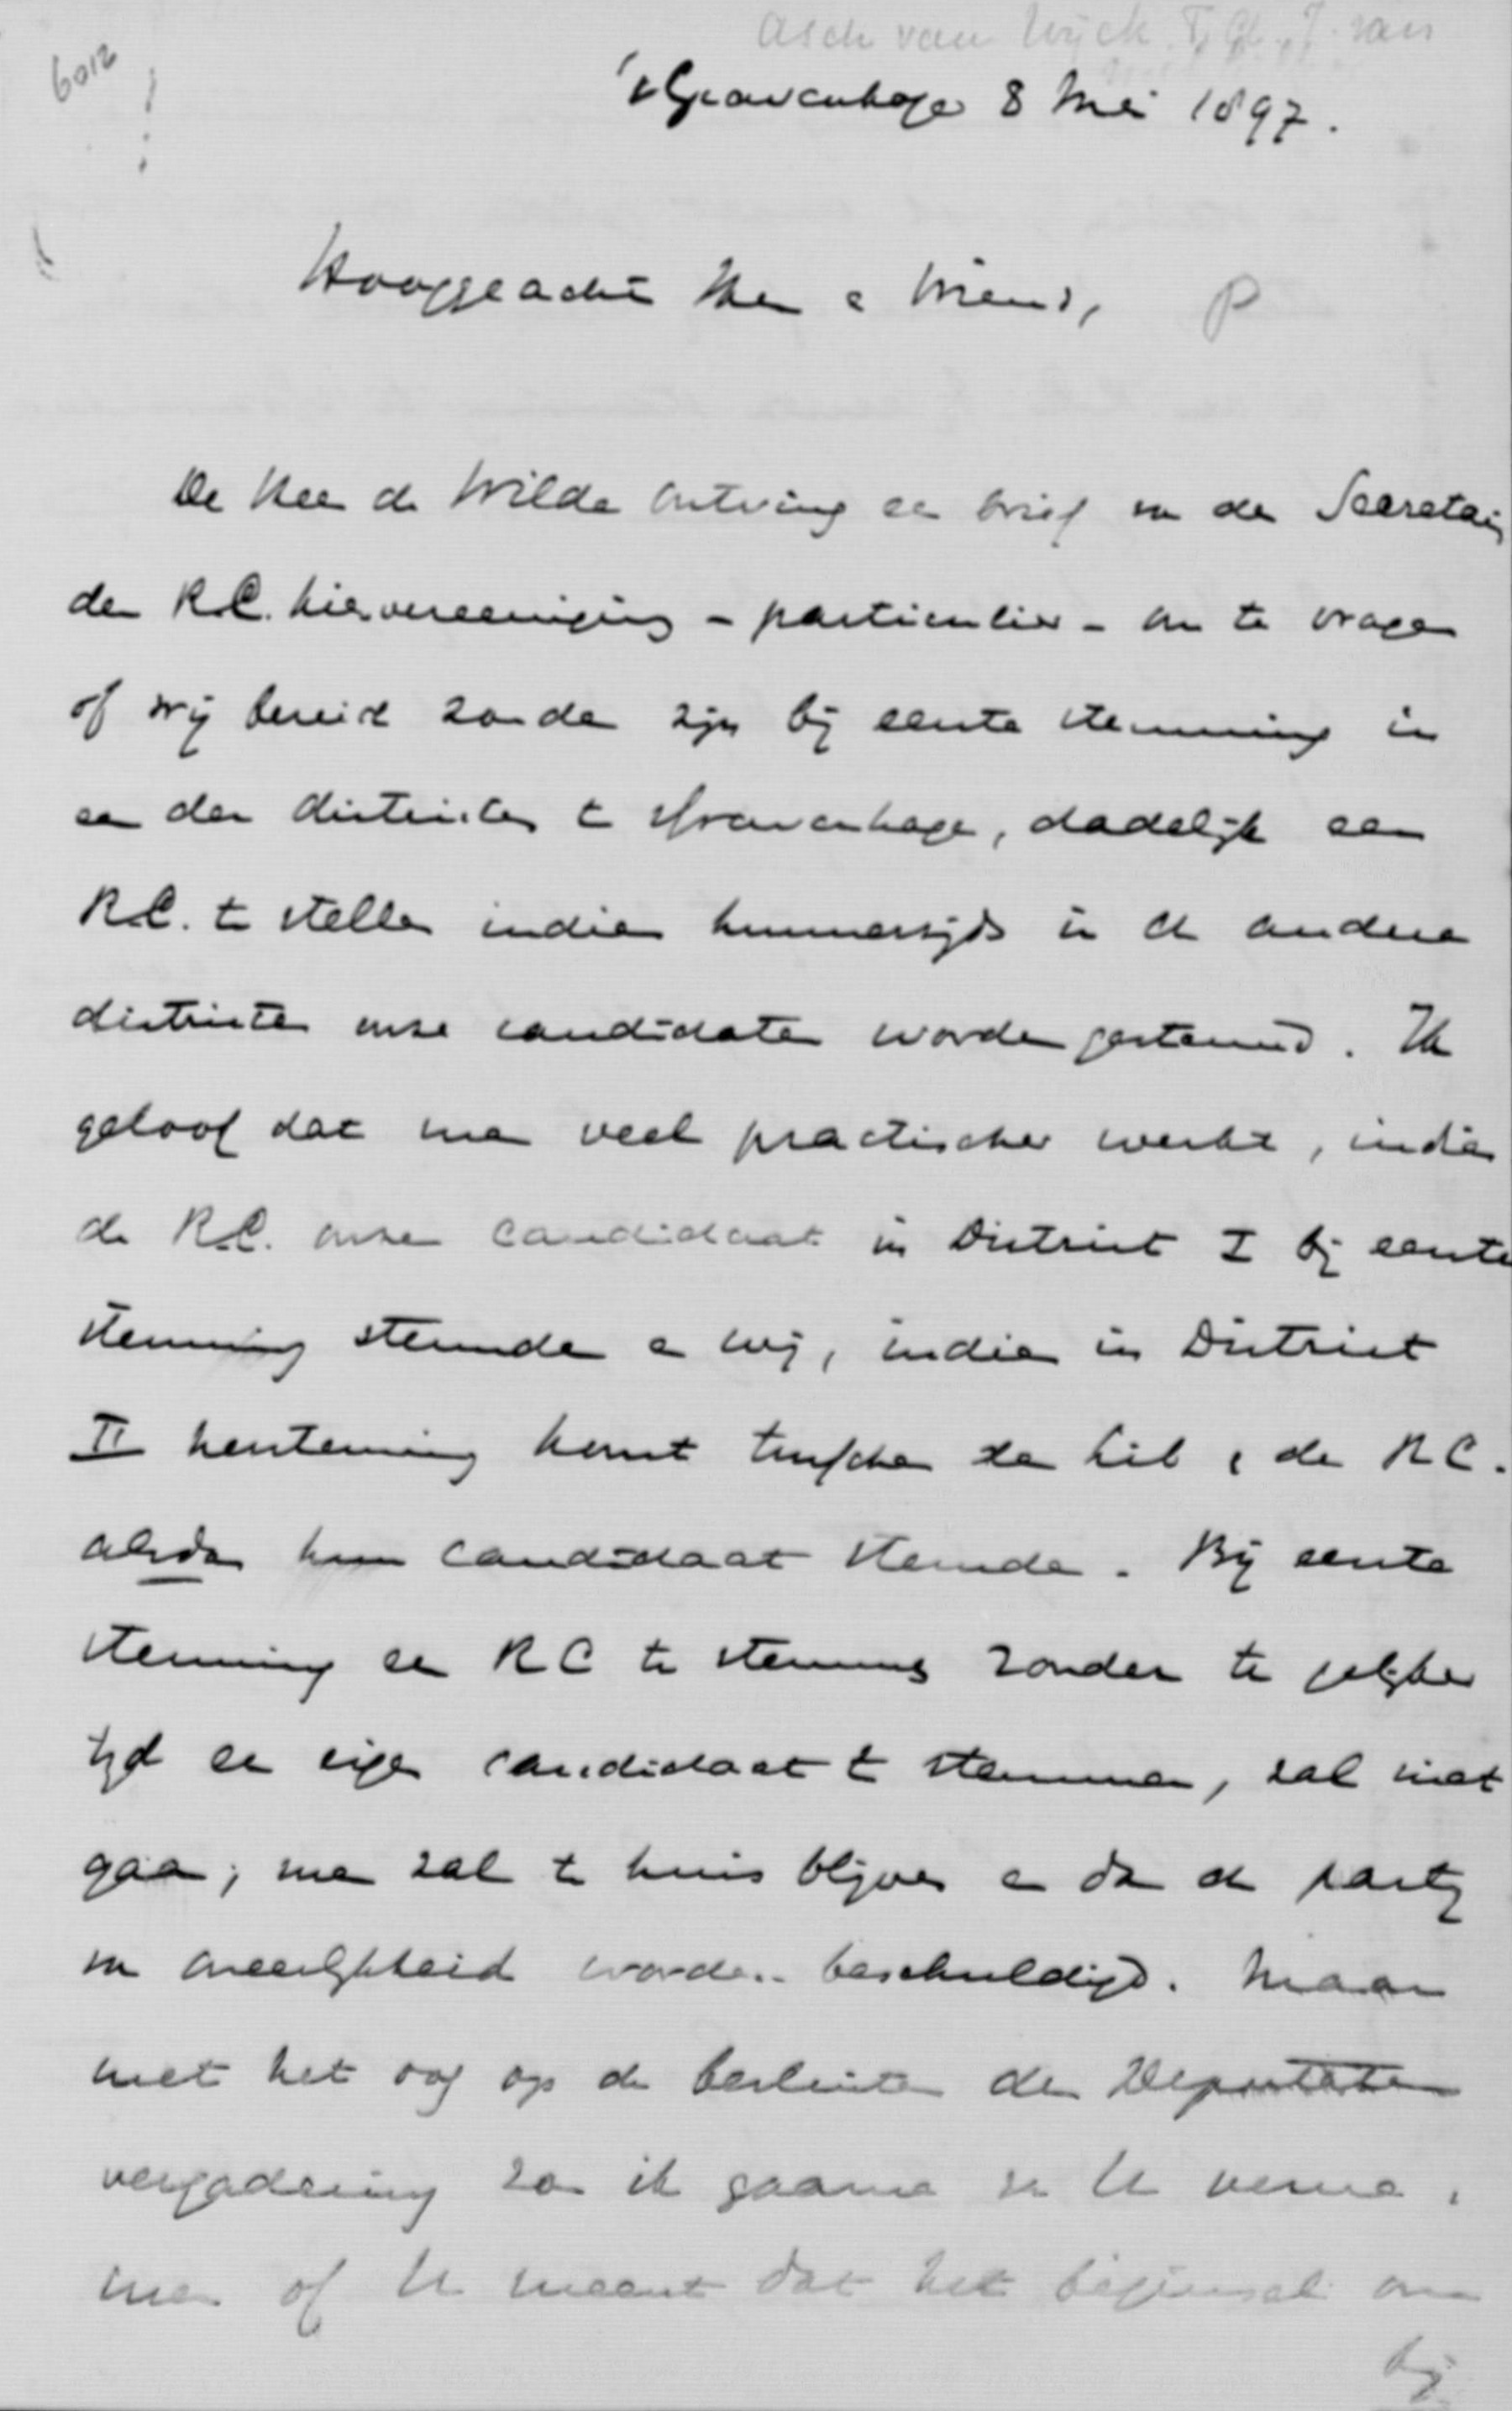 Asch van Wijck, T. van
6012
's Gravenhage 8 Mei 1897.
Hooggeachte Heer en Vriend,
P
De Heer de Wilde ontving een brief van den Secretaris
der R.C. Kiesvereeniging – particulier – om te vragen
of wij bereid zouden zijn bij eerste stemming in
een der districten te 's Gravenhage, dadelijk een
R.C. te stellen indien hunnerzijds in de andere
districten onze candidaten worden gestemd. Ik
geloof dat men veel practischer werkt, indien
de R.C. onzen candidaat in District I bij eerste
stemming stemden en wij, indien in District
II herstemming komt tusschen den lib. en de R C.
alsdan hun candidaat stemden. Bij eerste
stemming een R C te stemmen zonder te gelijker
tijd een eigen candidaat te stemmen, zal niet
gaan; men zal te huis blijven en dan de partij
van oneerlijkheid worden beschuldigd. Maar
met het oog op de besluiten der Deputaten
vergadering zou ik gaarne van U verne
men of U meent dat het beginsel om
bij